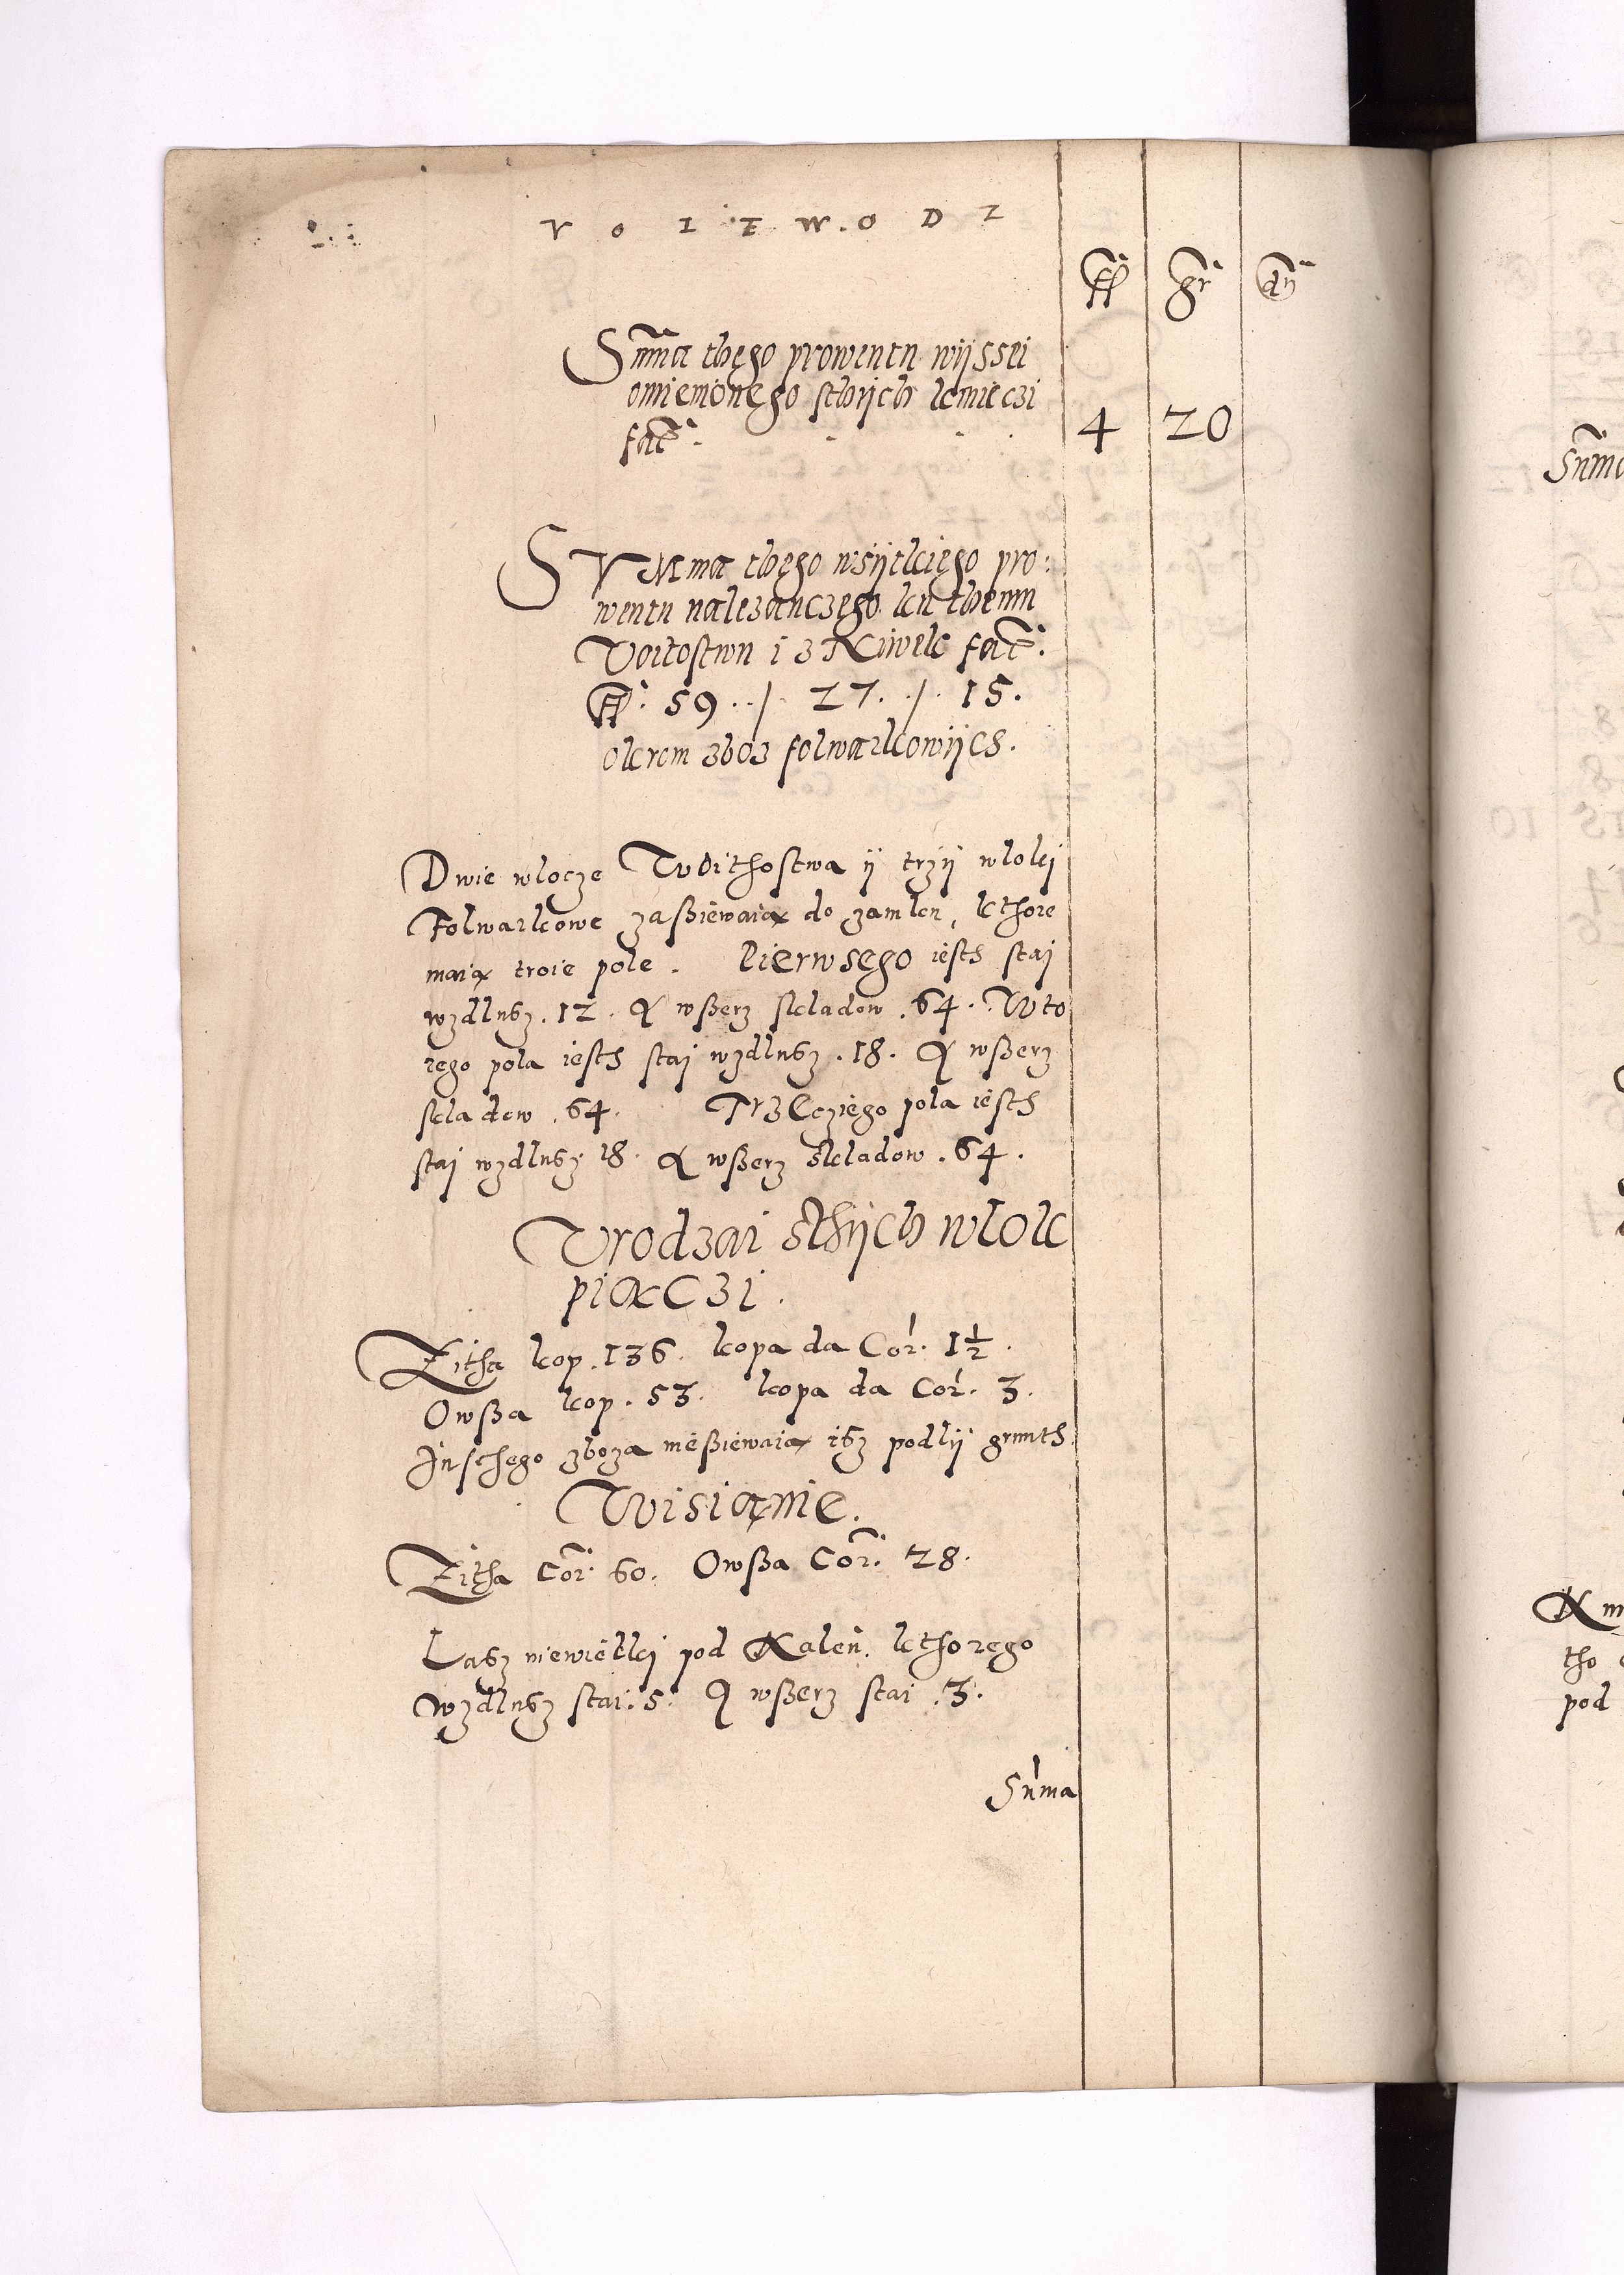 VOIEWODZ
ff gr dn
Summa thego prowentu wijssei
omiemionego sthijch kmieczi
fac̃. 4 20
SVMma thego wsijtkiego pro:
wentu należanczego ku themu
Voitostwu i z Kiwek fac̃.
ff. 59 ../. 27. ./. 15.
okrom zboz folwarkowijch.
Dwie wlocze Woithostwa ij trzij wloki
Folwarkowe zaßiewaią do zamku, kthore
maią troie pole. Pierwsego iesth staj
wzdlusz. 12. A wßerz skladow .64. Wto
rego pola iesth staj wzdlusz .18. A wßerz
skladow .64. Trzeczięgo pola iesth
staj wzdlusz 18. A wßerz skladow .64.
Vrodzai sthijch wlok
piąCzi.
Zitha kop .136. kopa da Cor. 1½.
Owßa kop. 53. kopa da Cor. 3.
Jnschego zboza nießiewaią isz podlij grunth.
Wisianie.
Zitha Cor. 60. Owßa Cor. 28.
Lasz niewielki pod Kaleń. kthorego
Wzdlusz stai. 5. A wßerz stai .3.
Suma